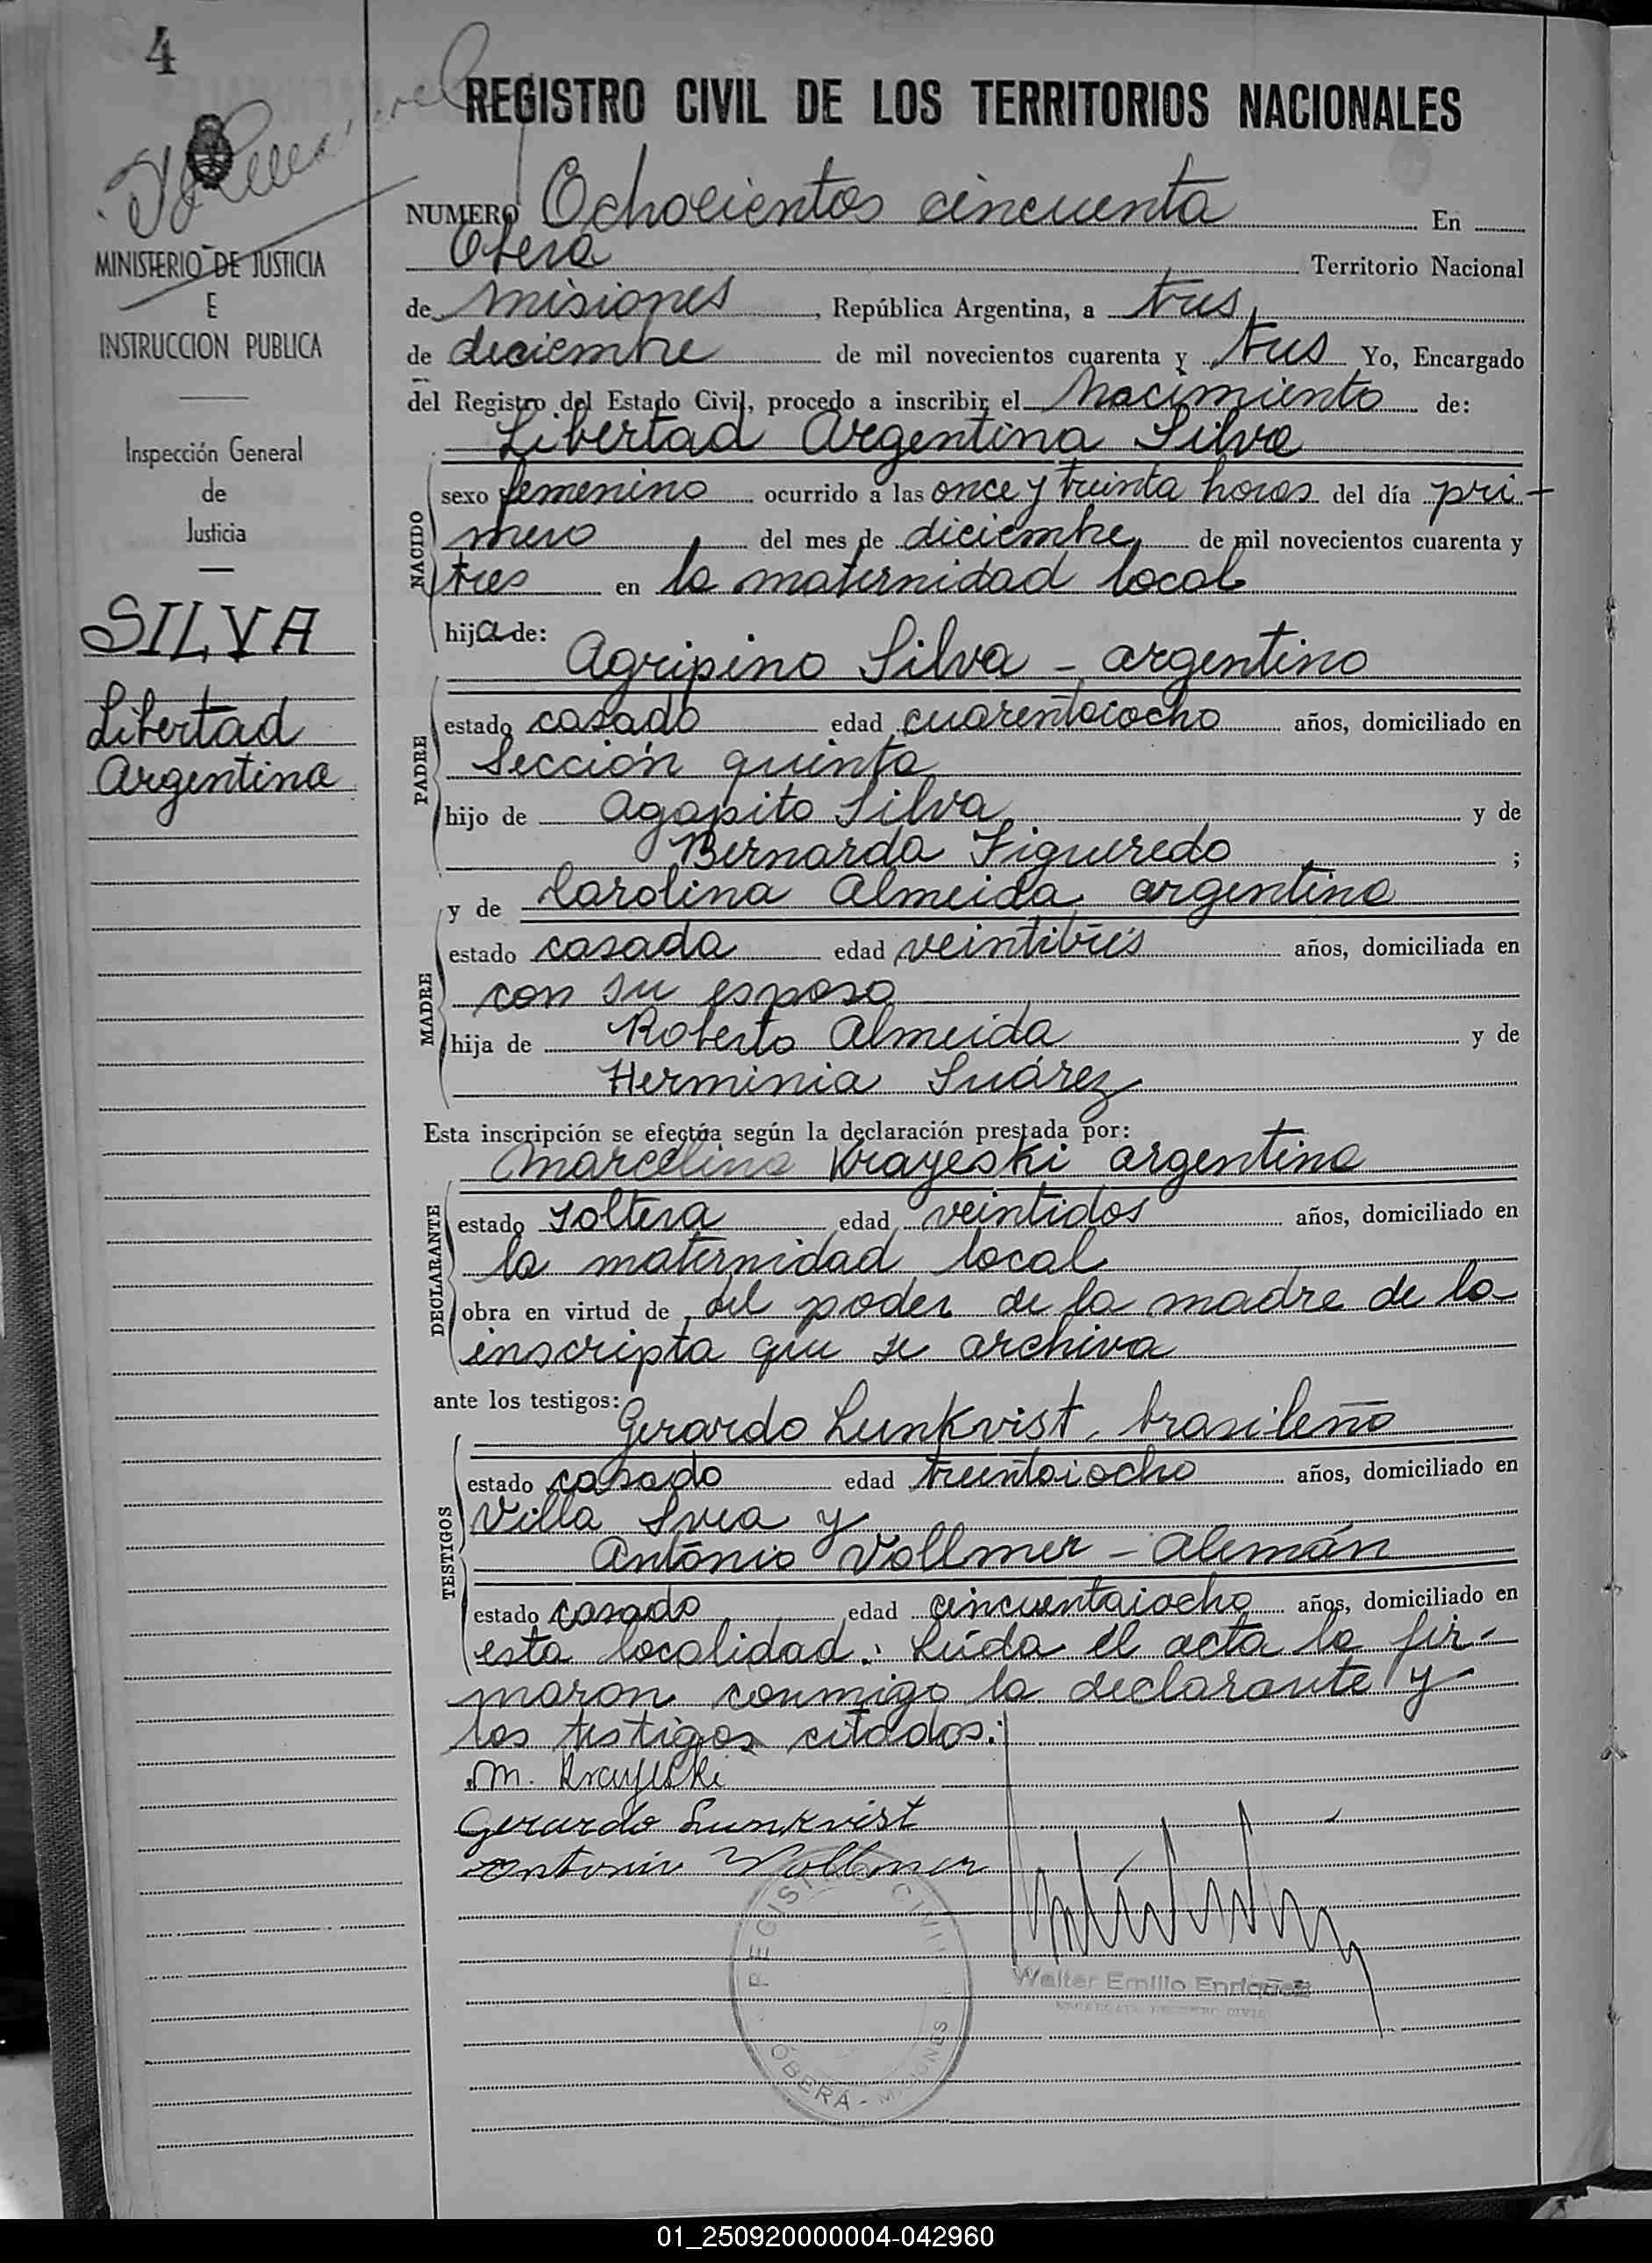 4
REGISTRO CIVIL DE LOS TERRITORIOS NACIONALES
MINISTERIO DE JUSTICIA
E
INSTRUCCION PUBLICA
Inspección General
de
Justicia
SILVA
Libertad
Argentina
NUMERO Ochocientos cincuenta En
Oberá Territorio Nacional
de Misiones, República Argentina, a tres
de diciembre de mil novecientos cuarenta y tres Yo, Encargado
del Registro del Estado Civil, procedo a inscribir el Nacimiento de:
Libertad Argentina Silva
NACIDO
sexo femenino ocurrido a las once y treinta horas del día pri-
mero del mes de diciembre de mil novecientos cuarenta y
tres en la maternidad local
hija de:
Agripino Silva - argentino
PADRE
estado casado edad cuarentaiocho años, domiciliado en
Sección quinta
hijo de Agapito Silva y de
Bernarda Figueredo ;
y de Carolina Almeida argentina
MADRE
estado casada edad veintitrés años, domiciliada en
con su esposo
hija de Roberto Almeida y de
Herminia Suárez
Esta inscripción se efectúa según la declaración prestada por:
Marcelina Krayeski argentina
DECLARANTE
estado soltera edad veintidos años, domiciliado en
la maternidad local
obra en virtud de del poder de la madre de la
inscripta que se archiva
ante los testigos:
Gerardo Lunkvist, brasileño
TESTIGOS
estado casado edad treintaiocho años, domiciliado en
Villa Svea y
Antonio Vollmer - Alemán
estado casado edad cincuentaiocho años, domiciliado en
esta localidad. Leída el acta la fir-
maron conmigo la declarante y
los testigos citados.
M. Krayeski
Gerardo Lunkvist
Antonio Vollmer
REGISTRO CIVIL
OBERÁ - MISIONES
Walter Emilio Enriquez
ENCARGADO REGISTRO CIVIL
01_250920000004-042960